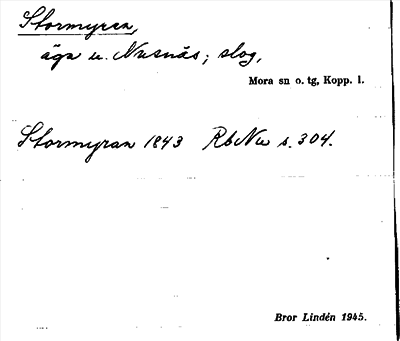 Stormyran,
äga u. Nusnäs; slog,
Mora sn o. tg, Kopp. l.
Stormyran 1843 RbNu s. 304.
Bror Lindén 1945.